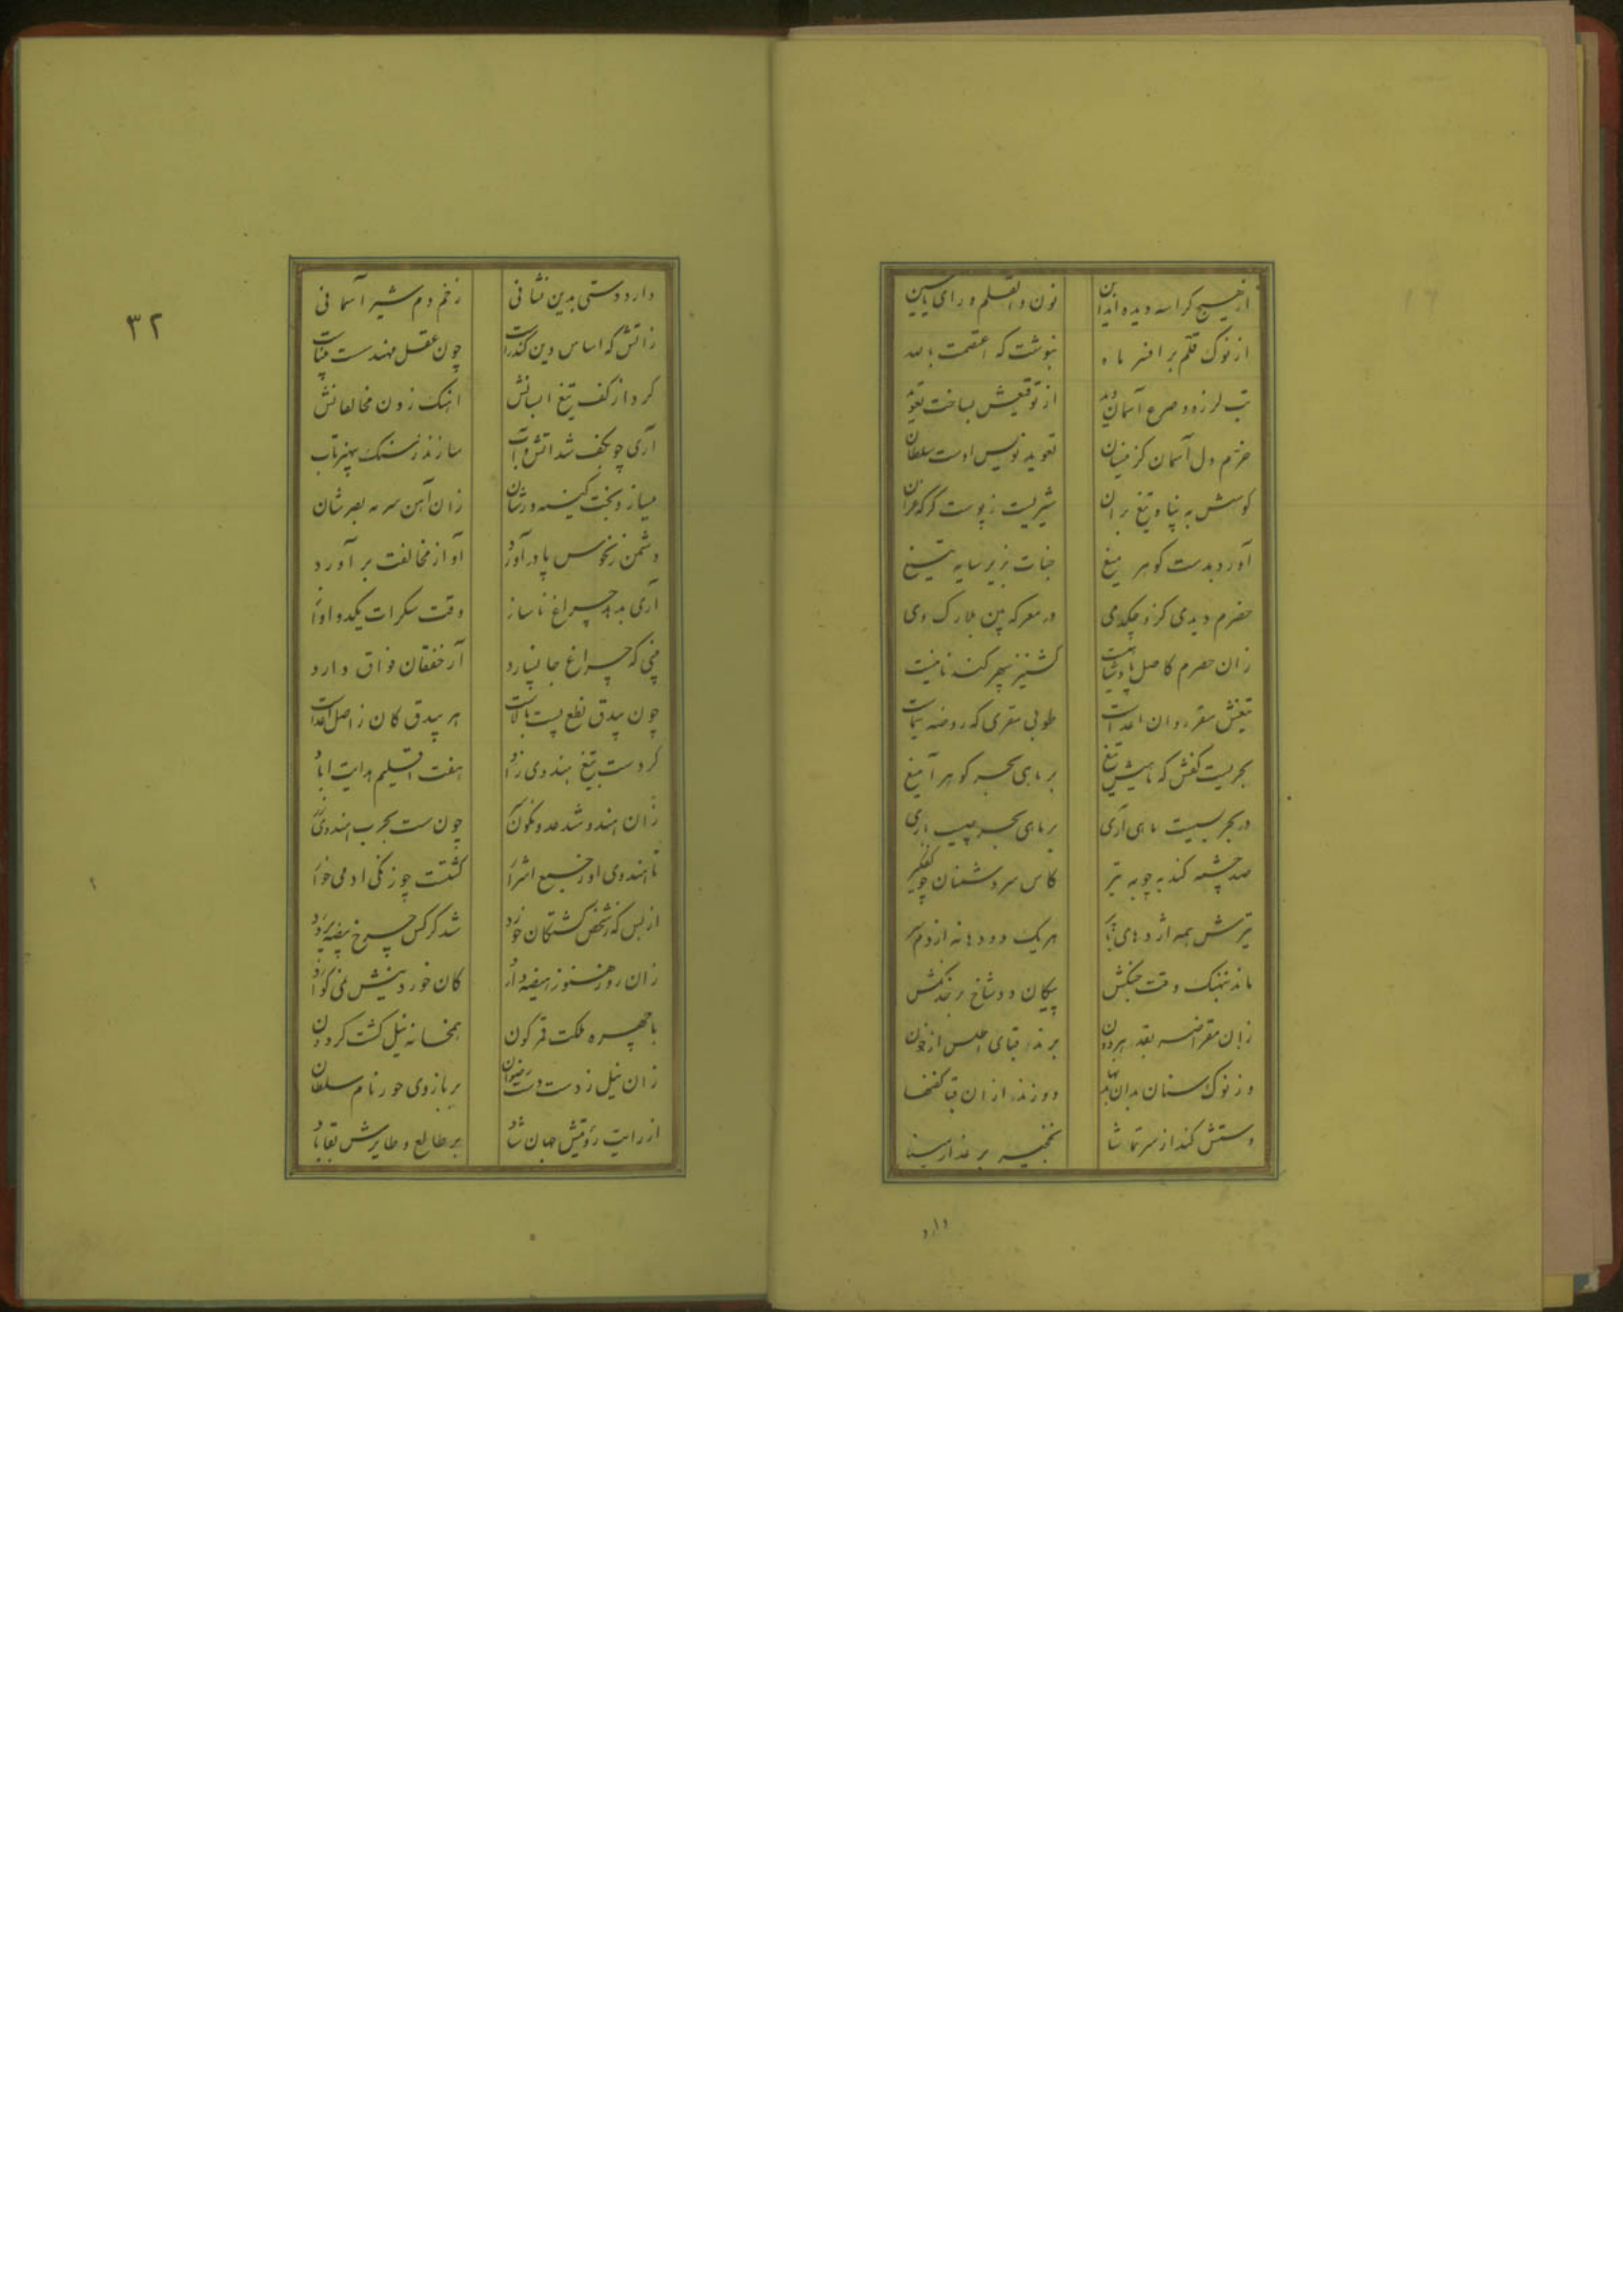 از هیچ کراسه دیده اند این نون والقلم ورای یاسین
از نوک قلم بر افسر ماه بنوشت که اعتصمت بالله
تب لرزه و صرع آسمان دید از توقیعش بساخت تعویذ
خرم دل آسمان کز میان تعویذ نویس اوست سلطان
کوسش به پناه تیغ بران شیریست ز پوست کرک غران
آورد بدست کوهر میغ جنات بزیر سایه تیغ
حضرم دیدی کزو چکد می در معرکه بین بلارک وی
زان حصرم کاصل پادشاهیت کشنیز سپهر کند نامیت
تیغش سقر روان اعداست طوبی سقری که روضه سیماست
بحریست کفش که ماهیش تیغ بر ماهی بحر کوهر آمیغ
در بحر بسیست ماهی آری بر ماهی بحر بین
صد چشمه کند به چوبه تیر کاس سر دشمنان چو کفکیر
تیرش همه اژدهای هر یک دو دهانه از دم سر
ماند نهنک وقت جنکش پیکان دو شاخ بر خدنکش
زان مقراضه بقد هر دون برند قبای اطلس از خون
وز نوک سنان بدان دوزند ازان قبا کفنها
دستش کند از سر تماشا کنجینه بر عذار مینا
دارد
۳۲
دارد دستی بدین نشانی زخم دم شیر آسمانی
زاتش که اساس دین کند راست چون عقل مهندست میناست
کرد از کف تیغ اینک زدن مخالفانش
آری چو بکف شد آتش و آب سازند ز سنک بهر تاب
میساز و بخت کینه ورشان زان آهن سرمه بصرشان
دشمن ز نحوس پا در آورد آواز مخالفت بر آورد
آری بدمد چراغ ناساز وقت سکرات یکدو آواز
بینی که چراغ جا نسپارد آن خفقان فواق دارد
چون بیدق نطع پست بالاست هر بیدق کان ز اصل اعداست
کردست بتیغ هندوی زاد هفت اقلیم هدایت آباد
زان هندو شد عدو نکون چون ست بحرب هندوی
تا هندوی او کشتت چو زنکی آدمی خوار
از بس که ز شخص کشتکان خورد شد کرکس چرخ بیضه پرورد
زان روز هنوز بیضه دارد کان خوردنیش می کوارد
با چهره ملکت قمر کون همخانه نیل کشت کردون
زان نیل ز دست دست رضوان بر بازوی حور نام سلطان
از رایت رؤیتش جهان شاد بر طالع و طایرش بقا باد